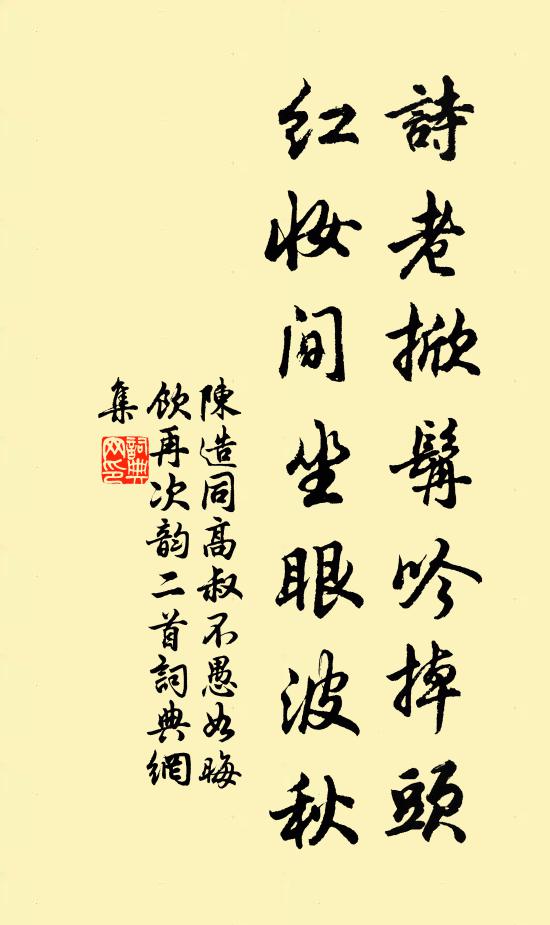 詩老掀髯吟掉頭
紅妝間坐眼波秋
陳造同高叔不愚如晦
飲再次韵二首詞典網
集
詞典
网印